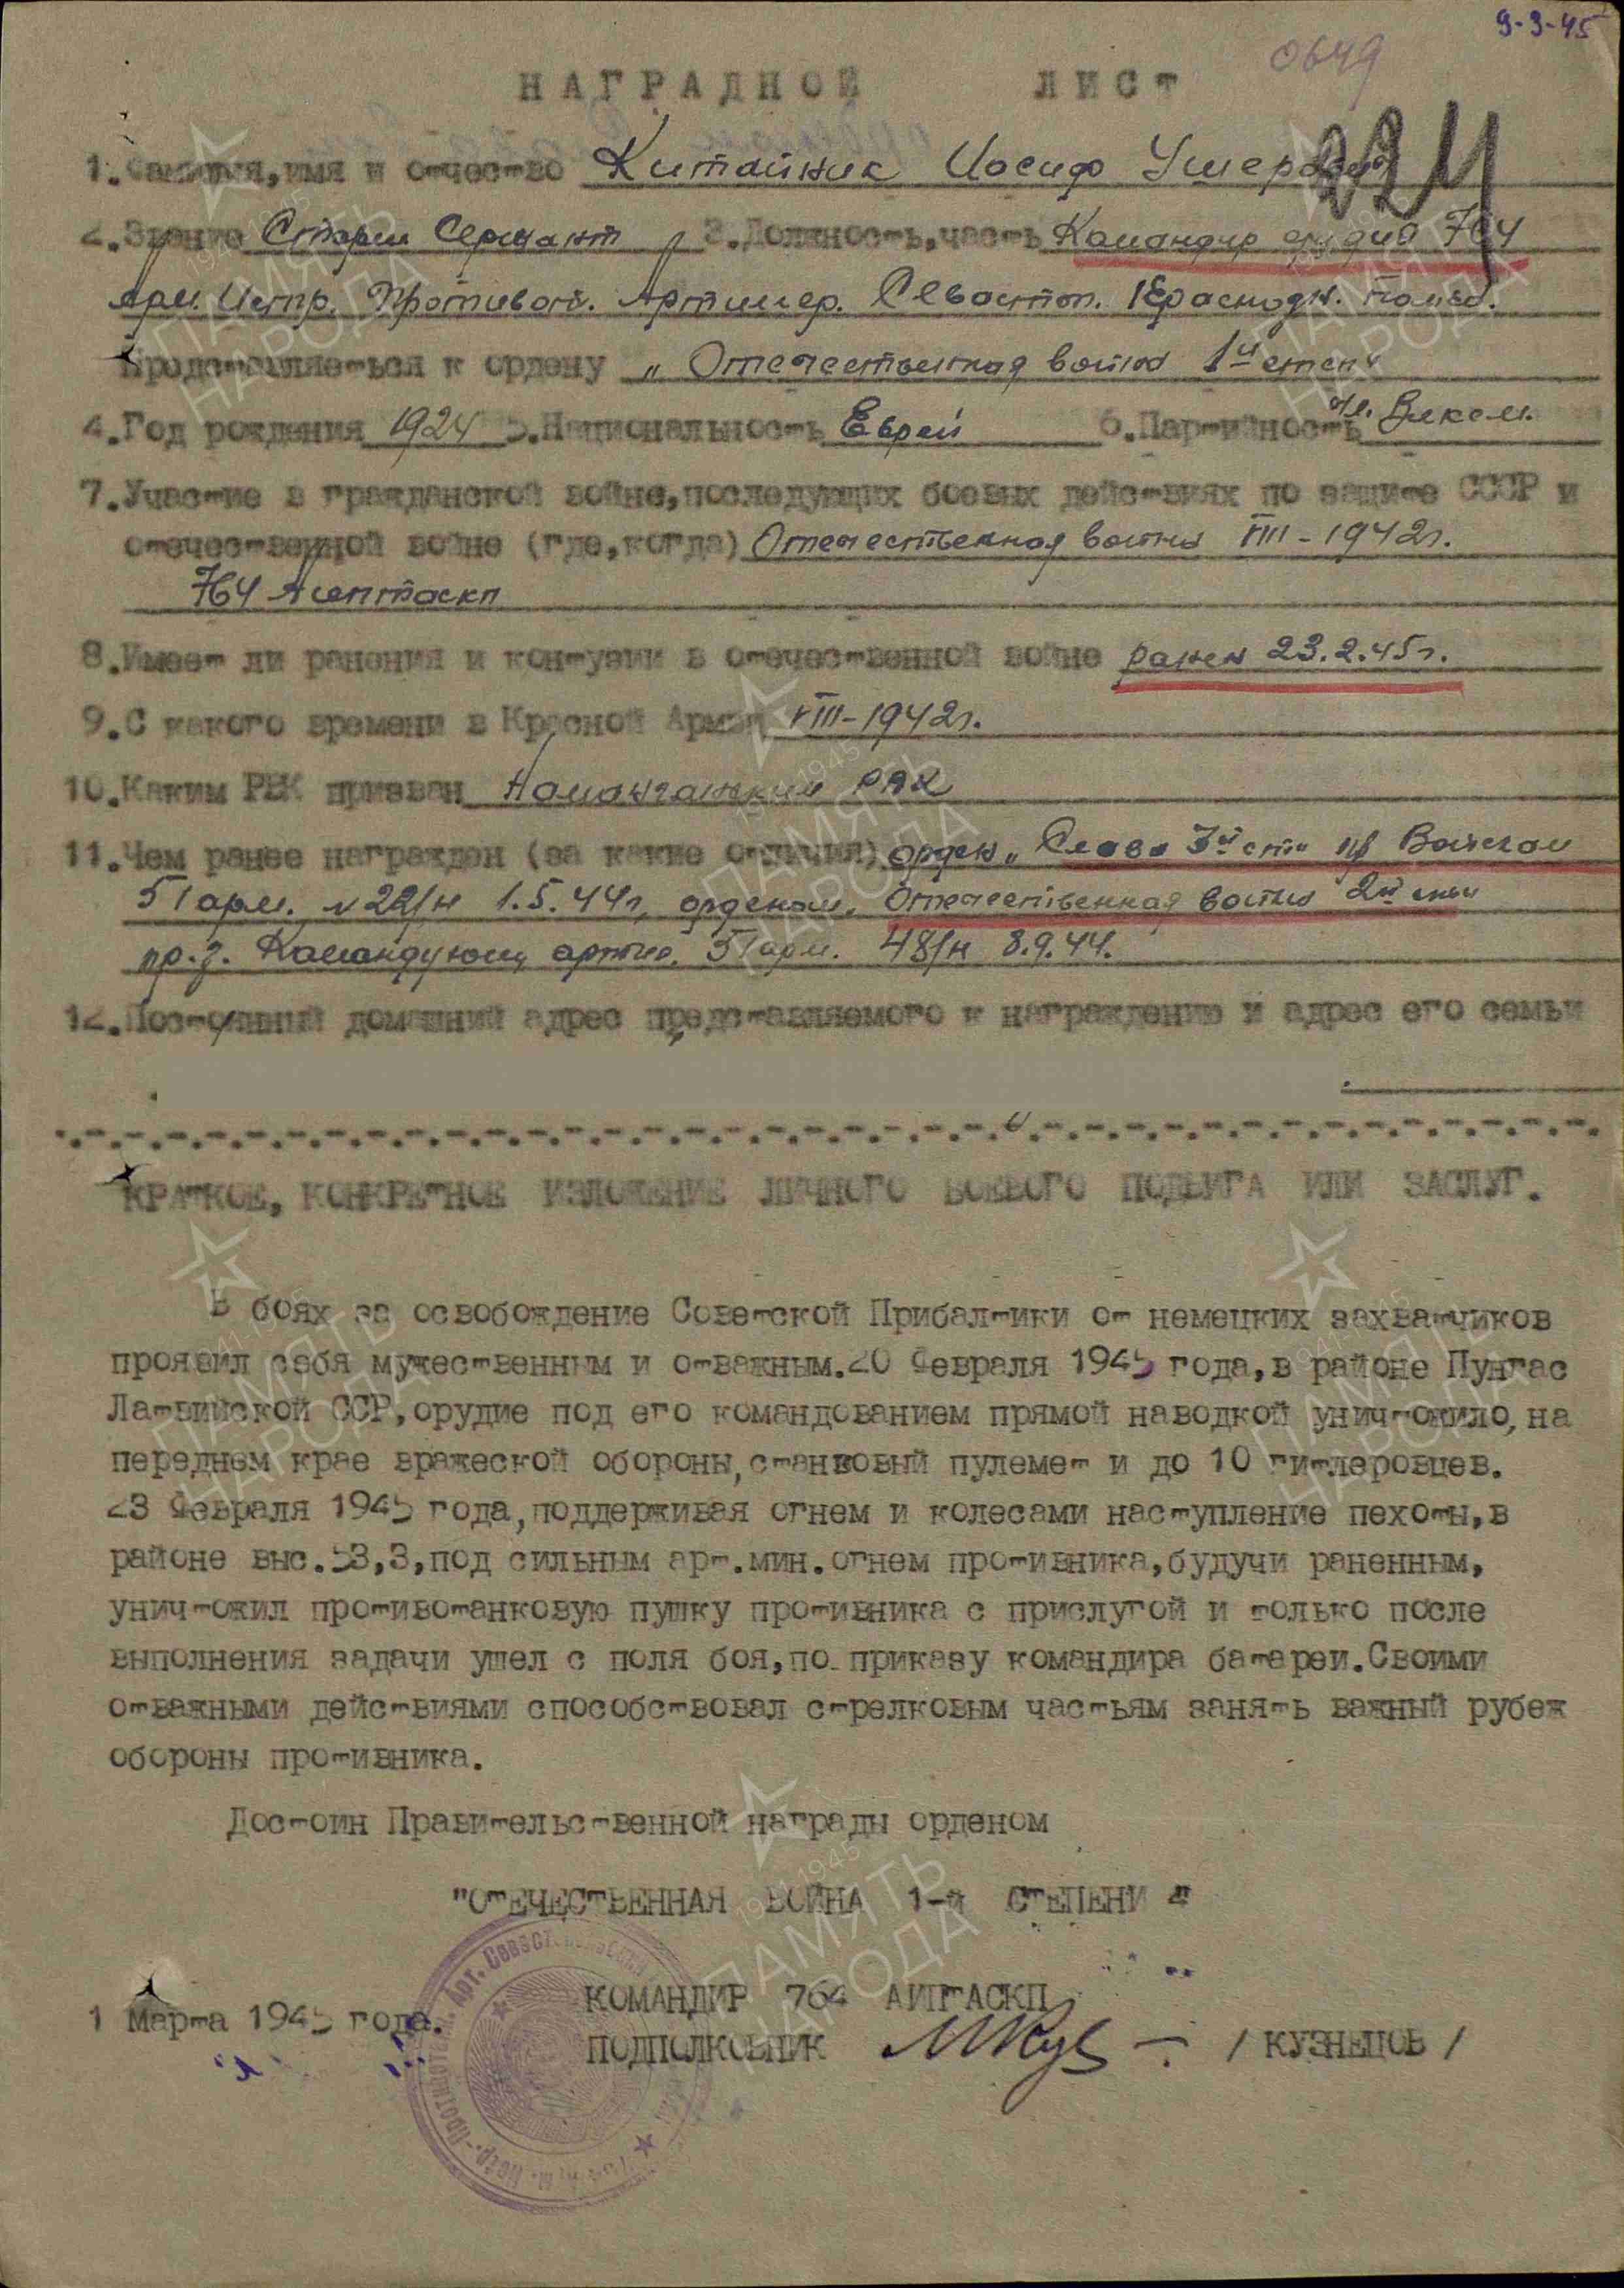 9-3-45
0649
НАГРАДНОЙ ЛИСТ
224
1. Фамилия, имя и отчество Китайник Иосиф Ушерович
2. Звание Старш Сержант 3. Должность, часть Командир орудия 764
Арм. Истр. Противот. Артилер. Севастоп. Краснодн. полка.
Продставляеться к ордену „Отечественная война 1й степ“
4. Год рождения 1924 5. Национальность Еврей 6. Партийность чл. Влксм.
7. Участие в гражданской войне, последующих боевых действиях по защите СССР и
отечественной войне (где, когда) Отечественная война VIII-1942г.
764 Аиптаскп
8. Имеет ли ранения и контузии в отечественной войне ранен 23.2.45г.
9. С какого времени в Красной Армии VIII-1942г.
10. Каким РВК призван Наманганским РВК
11. Чем ранее награжден (за какие отличия) орден „Слава 3й ст“ пр Войскам
51 арм. №22/н 1.5.44г, орденом, Отечественная война 2й степ
пр.з. Командующ артил. 51 арм. 48/н 8.9.44.
12. Постоянный домашний адрес представляемого к награждению и адрес его семьи
КРАТКОЕ, КОНКРЕТНОЕ ИЗЛОЖЕНИЕ ЛИЧНОГО БОЕВОГО ПОДВИГА ИЛИ ЗАСЛУГ.
В боях за освобождение Советской Прибалтики от немецких захватчиков
проявил себя мужественным и отважным. 20 Февраля 1945 года, в районе Пунгас
Латвийской ССР, орудие под его командованием прямой наводкой уничтожило, на
переднем крае вражеской обороны, станковый пулемет и до 10 гитлеровцев.
23 Февраля 1945 года, поддерживая огнем и колесами наступление пехоты, в
районе выс. 53,3, под сильным арт. мин. огнем противника, будучи раненным,
уничтожил противотанковую пушку противника с прислугой и только после
выполнения задачи ушел с поля боя, по приказу командира батареи. Своими
отважными действиями способствовал стрелковым частьям занять важный рубеж
обороны противника.
Достоин Правительственной награды орденом
"ОТЕЧЕСТВЕННАЯ ВОЙНА 1-й СТЕПЕНИ"
КОМАНДИР 764 АИПТАСКП
1 Марта 1945 года.
ПОДПОЛКОВНИК / КУЗНЕЦОВ /
ПАМЯТЬ НАРОДА
1941-1945